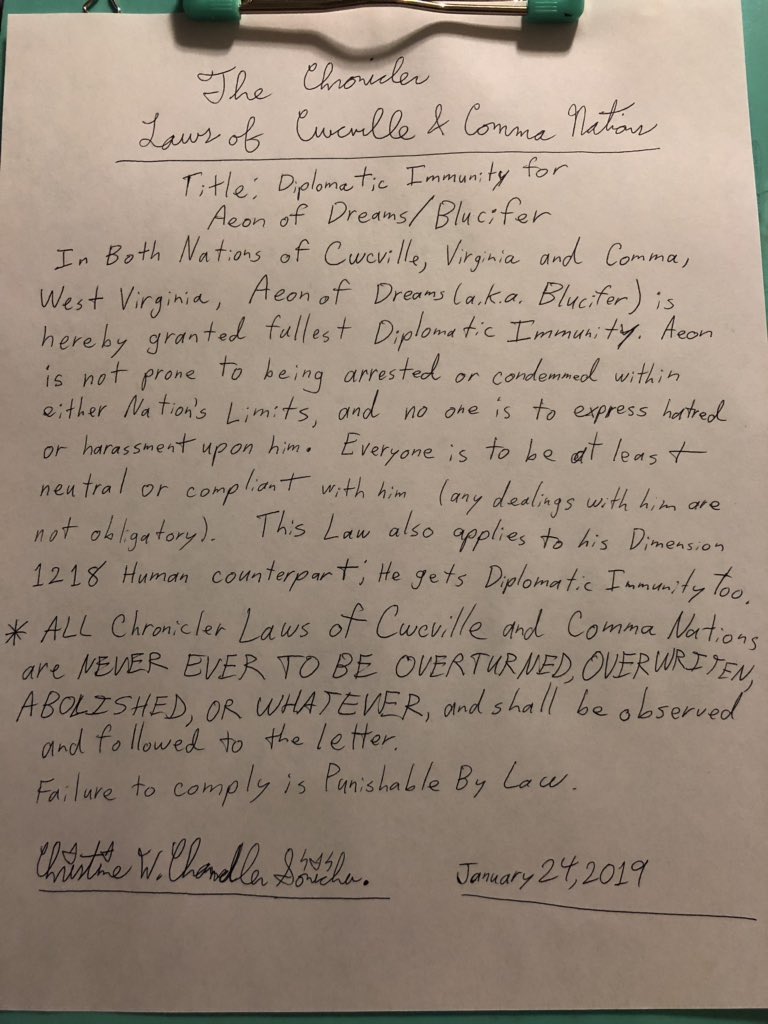 The Chronicler
Laws of Cwcville & Comma Nations
Title: Diplomatic Immunity for
Aeon of Dreams/Blucifer
In Both Nations of Cwcville, Virginia and Comma,
West Virginia, Aeon of Dreams (a.k.a. Blucifer) is
hereby granted fullest Diplomatic Immunity. Aeon
is not prone to being arrested or condemmed within
either Nation's Limits, and no one is to express hatred
or harassment upon him. Everyone is to be at least
neutral or compliant with him (any dealings with him are
not obligatory). This Law also applies to his Dimension
1218 Human counterpart; He gets Diplomatic Immunity too.
* ALL Chronicler Laws of Cwcville and Comma Nations
are NEVER EVER TO BE OVERTURNED, OVERWRITEN,
ABOLISHED, OR WHATEVER, and shall be observed
and followed to the letter.
Failure to comply is Punishable By Law.
Christine W. Chandler Sonichu.
January 24, 2019